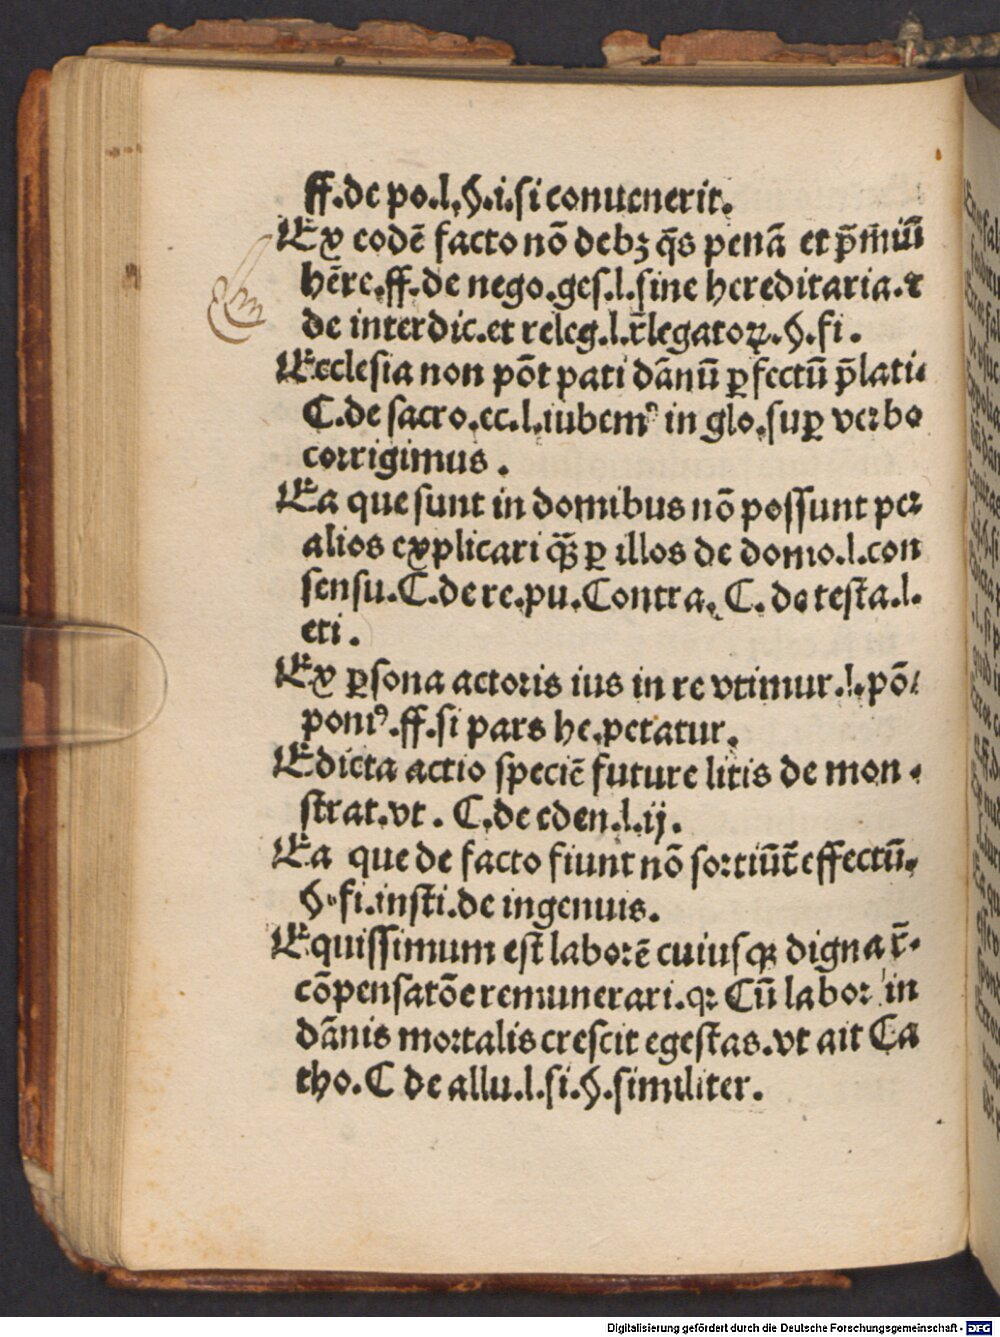 ff.de po.l.§.i.si conuenerit.
Ex eodē facto nō debꝫ q̄s penā et p̄miū
hēre.ff.de nego.ges.l.sine hereditaria.⁊
de interdic.et releg.l.r̄legatoꝝ.§.fi.
Ecclesia non pōt pati dānū ꝑ fectū p̄lati.
C.de sacro.ec.l.iubemꝰ in glo.suꝑ verbo
corrigimus.
Ea que sunt in domibus nō possunt per
alios explicari q̄ꝫ ꝑ illos de domo.l.con
sensu.C.de re.pu.Contra. C. de testa.l.
eti.
Ex ꝑsona actoris ius in re vtimur.l.pō/
poniꝰ.ff.si pars he.petatur.
Edicta actio speciē future litis de mon.
strat.vt. C.de eden.l.ij.
Ea que de facto fiunt nō sortiūt̄ effectū.
§.fi.insti.de ingenuis.
Equissimum est̄ laborē cuiusqꝫ digna r̄.
cōpensatōe remunerari.qꝛ Cū labor in
dānis mortalis crescit egestas.vt ait Ca
tho.C de allu.l.si.§.similiter.
Digitalisierung gefördert durch die Deutsche Forschungsgemeinschaft - DFG